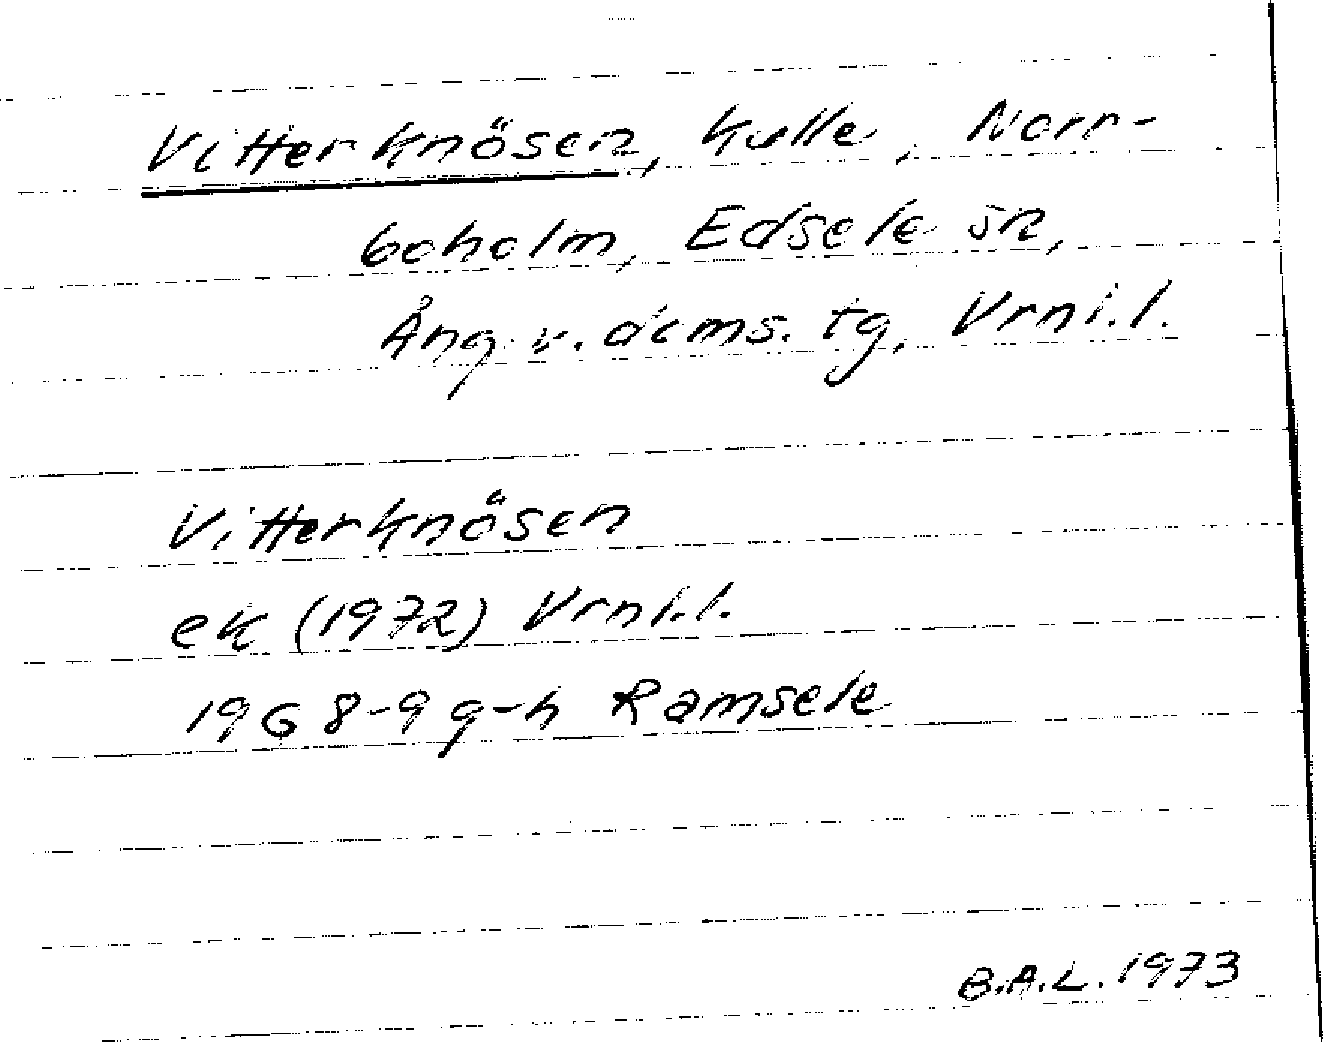 Vitterknösen, kulle, Norr-
boholm, Edsele sn,
Ång. v. dcms. tg, Vrnl.l.
Vitterknösen
ek (1972) Vrnl.l.
19G 8-9 g-h Ramsele
B.A.L. 1973